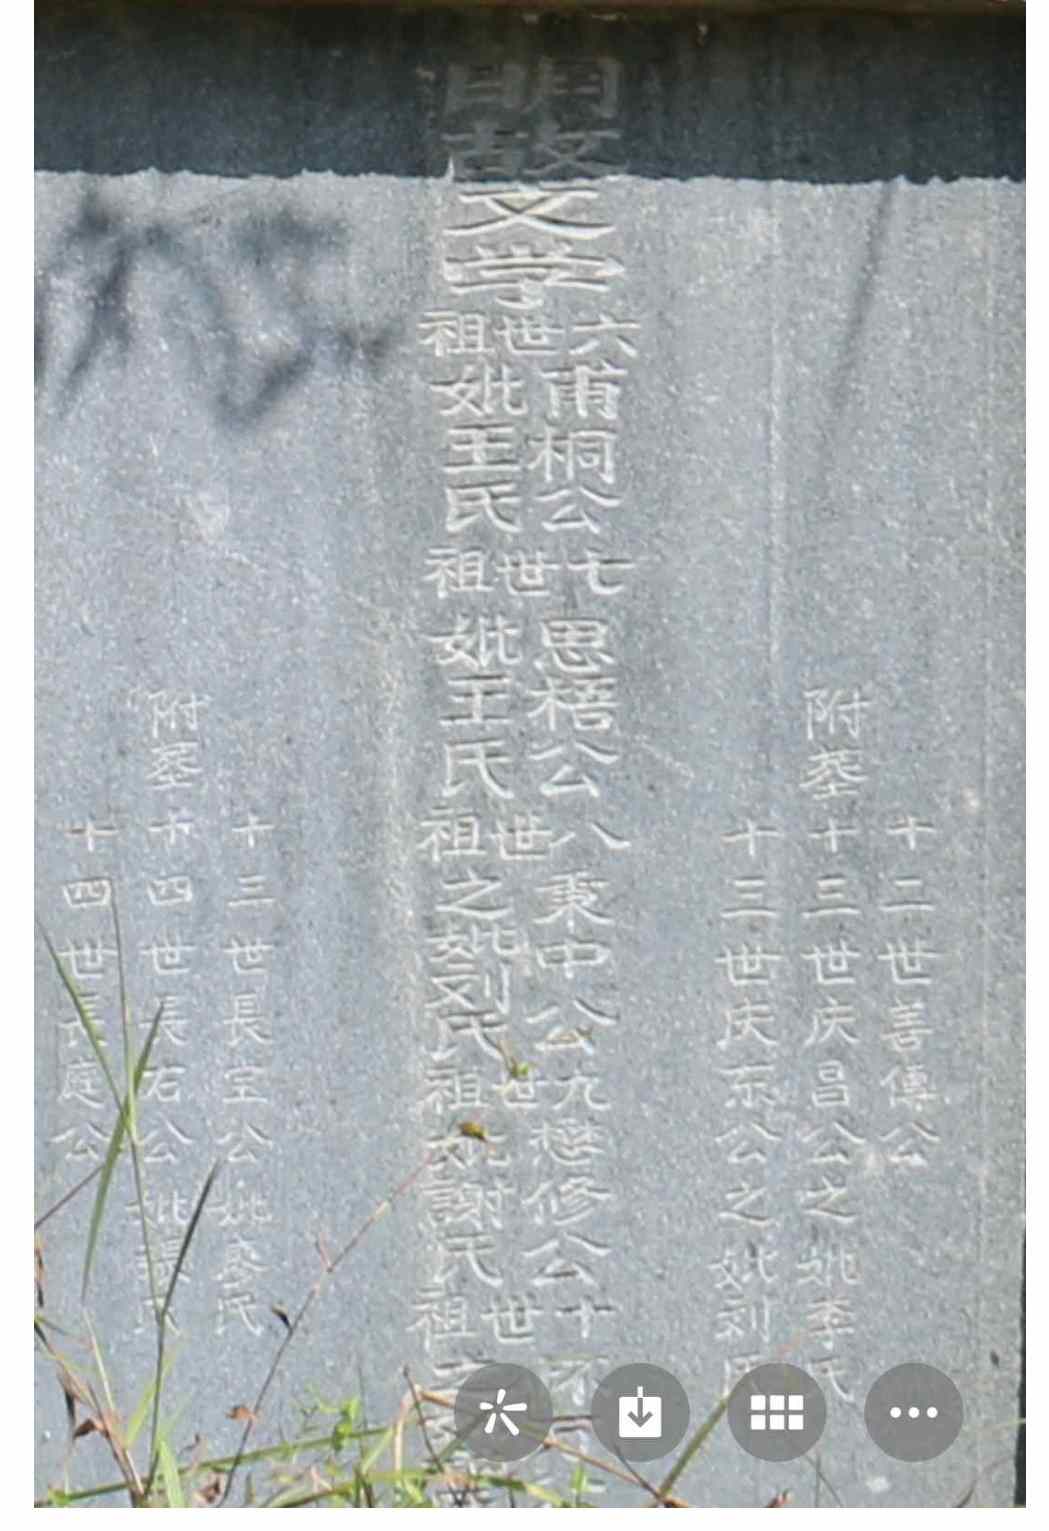 明故
文学
六世祖
甫桐公
妣王氏
七世祖
思梧公
妣王氏
八世祖
秉中公
之妣刘氏
九世祖
懋修公
妣謝氏
十世祖
十二世善傳公
附葬十三世庆昌公之妣李氏
十三世庆东公之妣刘氏
十三世長室公妣氏
附葬十四世長右公妣張氏
十四世長庭公